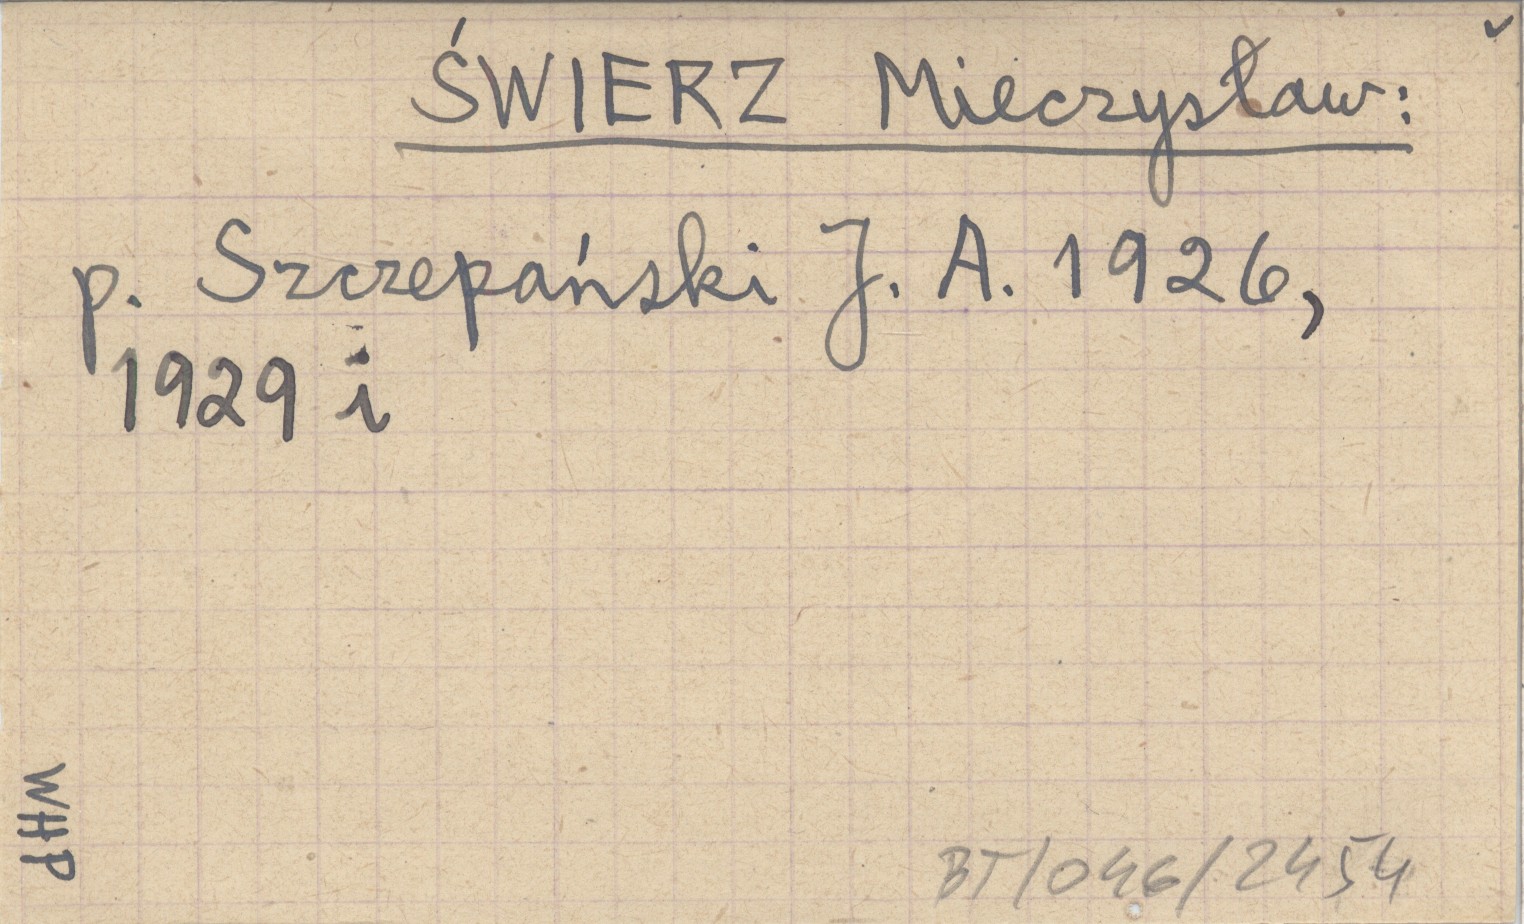 ŚWIERZ Mieczysław:
p. Szczepański J. A. 1926,
1929 i
WHP
BT/046/2454